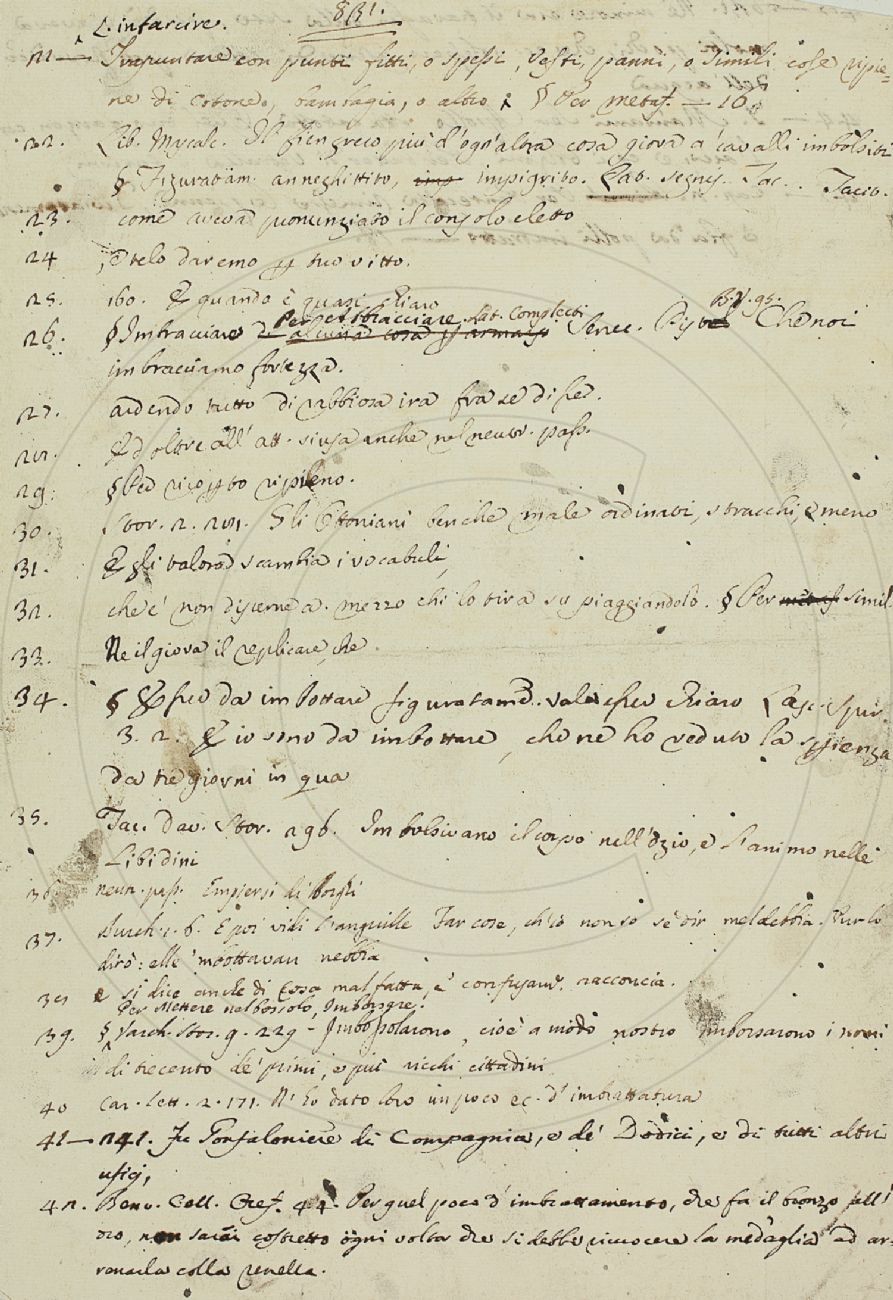 831.
L. infarcire.
21 — Trapuntare con punti fitti, o spessi, vesti, panni, o simili cose ripie=
ne di cotone, bambagia, o altro § Per metaf. — 16
22. Lib. Mascalc. Il fiengreco più d'ogn'altra cosa giova a' cavalli imbolsiti
§ Figuratam. anneghittito, impigrito. Lat. segnis. Tac.
23. come aveva pronunziato il consolo eletto
24 , e telo daremo p tuo vitto.
25. 160. E quando è quasi chiaro
Per Abbracciare. Lat. Complecti
26. § Imbracciare alcuna cosa p armarsi Senec. Pist. 95. Che noi
imbracciamo fortezza.
27. ardendo tutto di rabbiosa ira fra se disse.
28. Ed oltre all' att. si usa anche nel neutr. pass.
29. § Per ricopto ripieno.
30. Stor. 2. 281. Gli Ottoniani benche male ordinati, stracchi, e meno
31. E gli valorod scambia i vocabuli
32. che c' non discerne a mezzo chi lo tira su piaggiandolo. § Per metaf simil.
33. Ne il giova il replicare, che
34. § Esser da imbottare figuratamē. vale esser chiaro Lasc. Spir.
3. 2. E io sono da imbottare, che ne ho veduto la spienza
da tre giorni in qua
35. Tac. Dav. Stor. 296. Imbolsivano il corpo nell'ozio, e l'animo nelle
Libidini
36 neutr. pass. Empiersi di borri
37. Burch. 1. 6. E poi vidi l'anguille Far cose, ch'io non so se dir mel debbia. Pur lo
dirò: elle 'mbottavan nebbia
38 e si dice anche di cosa mal fatta, e confusam. racconcia.
Per Mettere nel bossolo, Imborsare.
39. § Varch. Stor. 9. 229 - Imbossolarono, cioè a modo nostro imborsarono i nomi
di trecento de' primi, e più ricchi cittadini
40 Car. Lett. 2. 171. N' ho dato loro un poco ec. d' imbrattatura
41 — 241. Il Gonfaloniere di Compagnia, e de' Dodici, e di tutti altri
ufici,
42. Benv. Cell. Oref. 44. Per quel poco d' imbrattamento, che fa il bronzo all'
oro, non sarai costretto ogni volta che si debbe ricuocere la medaglia ad ar=
renarla colla renella.